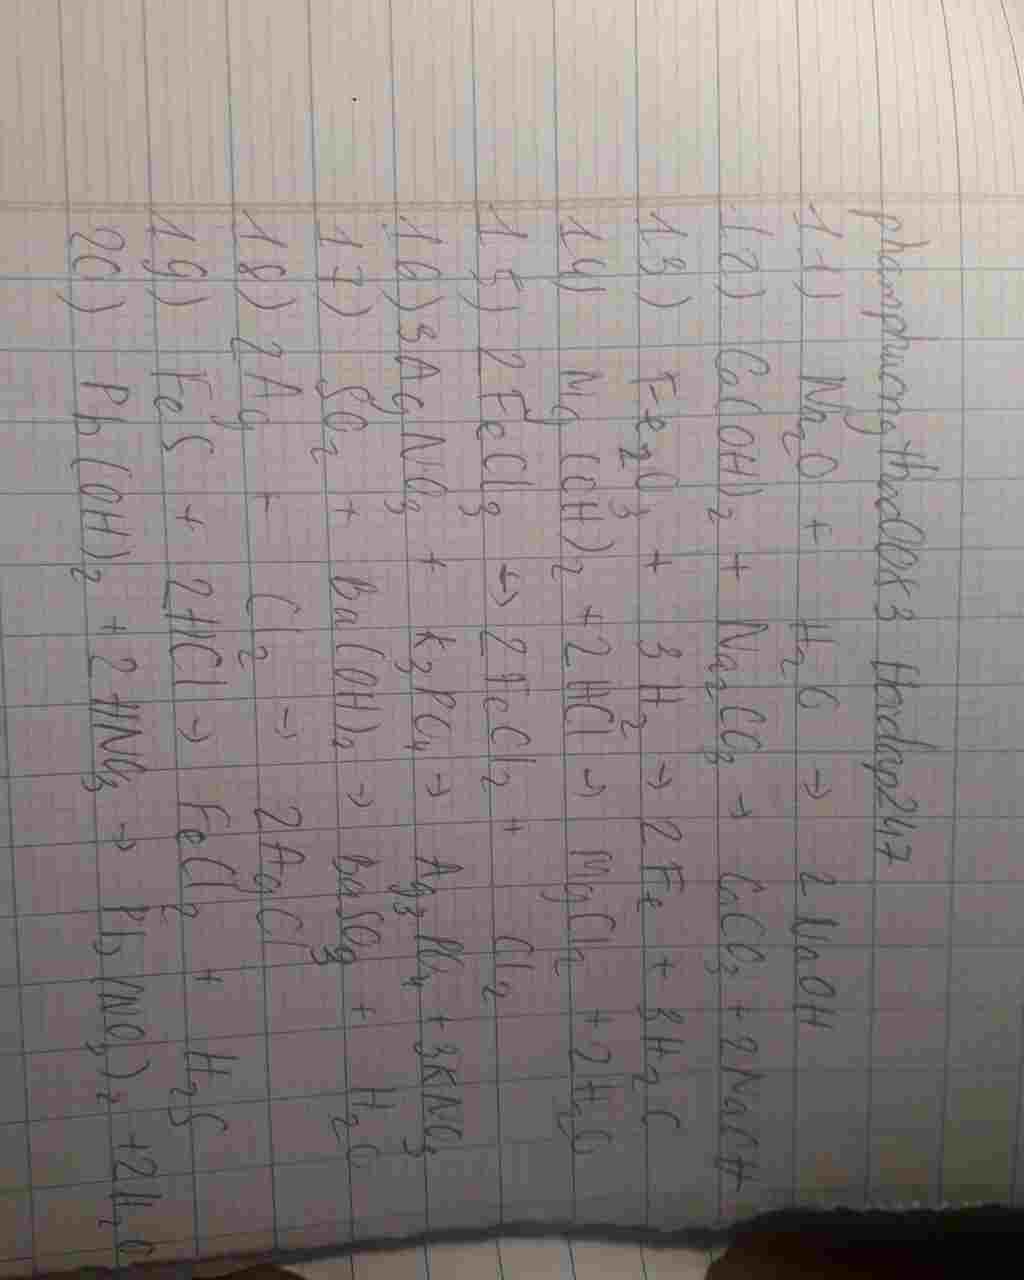 phamphuongthu0083 Hoidap247
11) Na₂O + H₂O → 2NaOH
12) Ca(OH)₂ + Na₂CO₃ → CaCO₃ + 2NaOH
13) Fe₂O₃ + 3H₂ → 2Fe + 3H₂O
14) Mg(OH)₂ + 2HCl → MgCl₂ + 2H₂O
15) 2FeCl₃ → 2FeCl₂ + Cl₂
16) 3AgNO₃ + K₃PO₄ → Ag₃PO₄ + 3KNO₃
17) SO₂ + Ba(OH)₂ → BaSO₃ + H₂O
18) 2Ag + Cl₂ → 2AgCl
19) FeS + 2HCl → FeCl₂ + H₂S
20) Pb(OH)₂ + 2HNO₃ → Pb(NO₃)₂ + 2H₂O